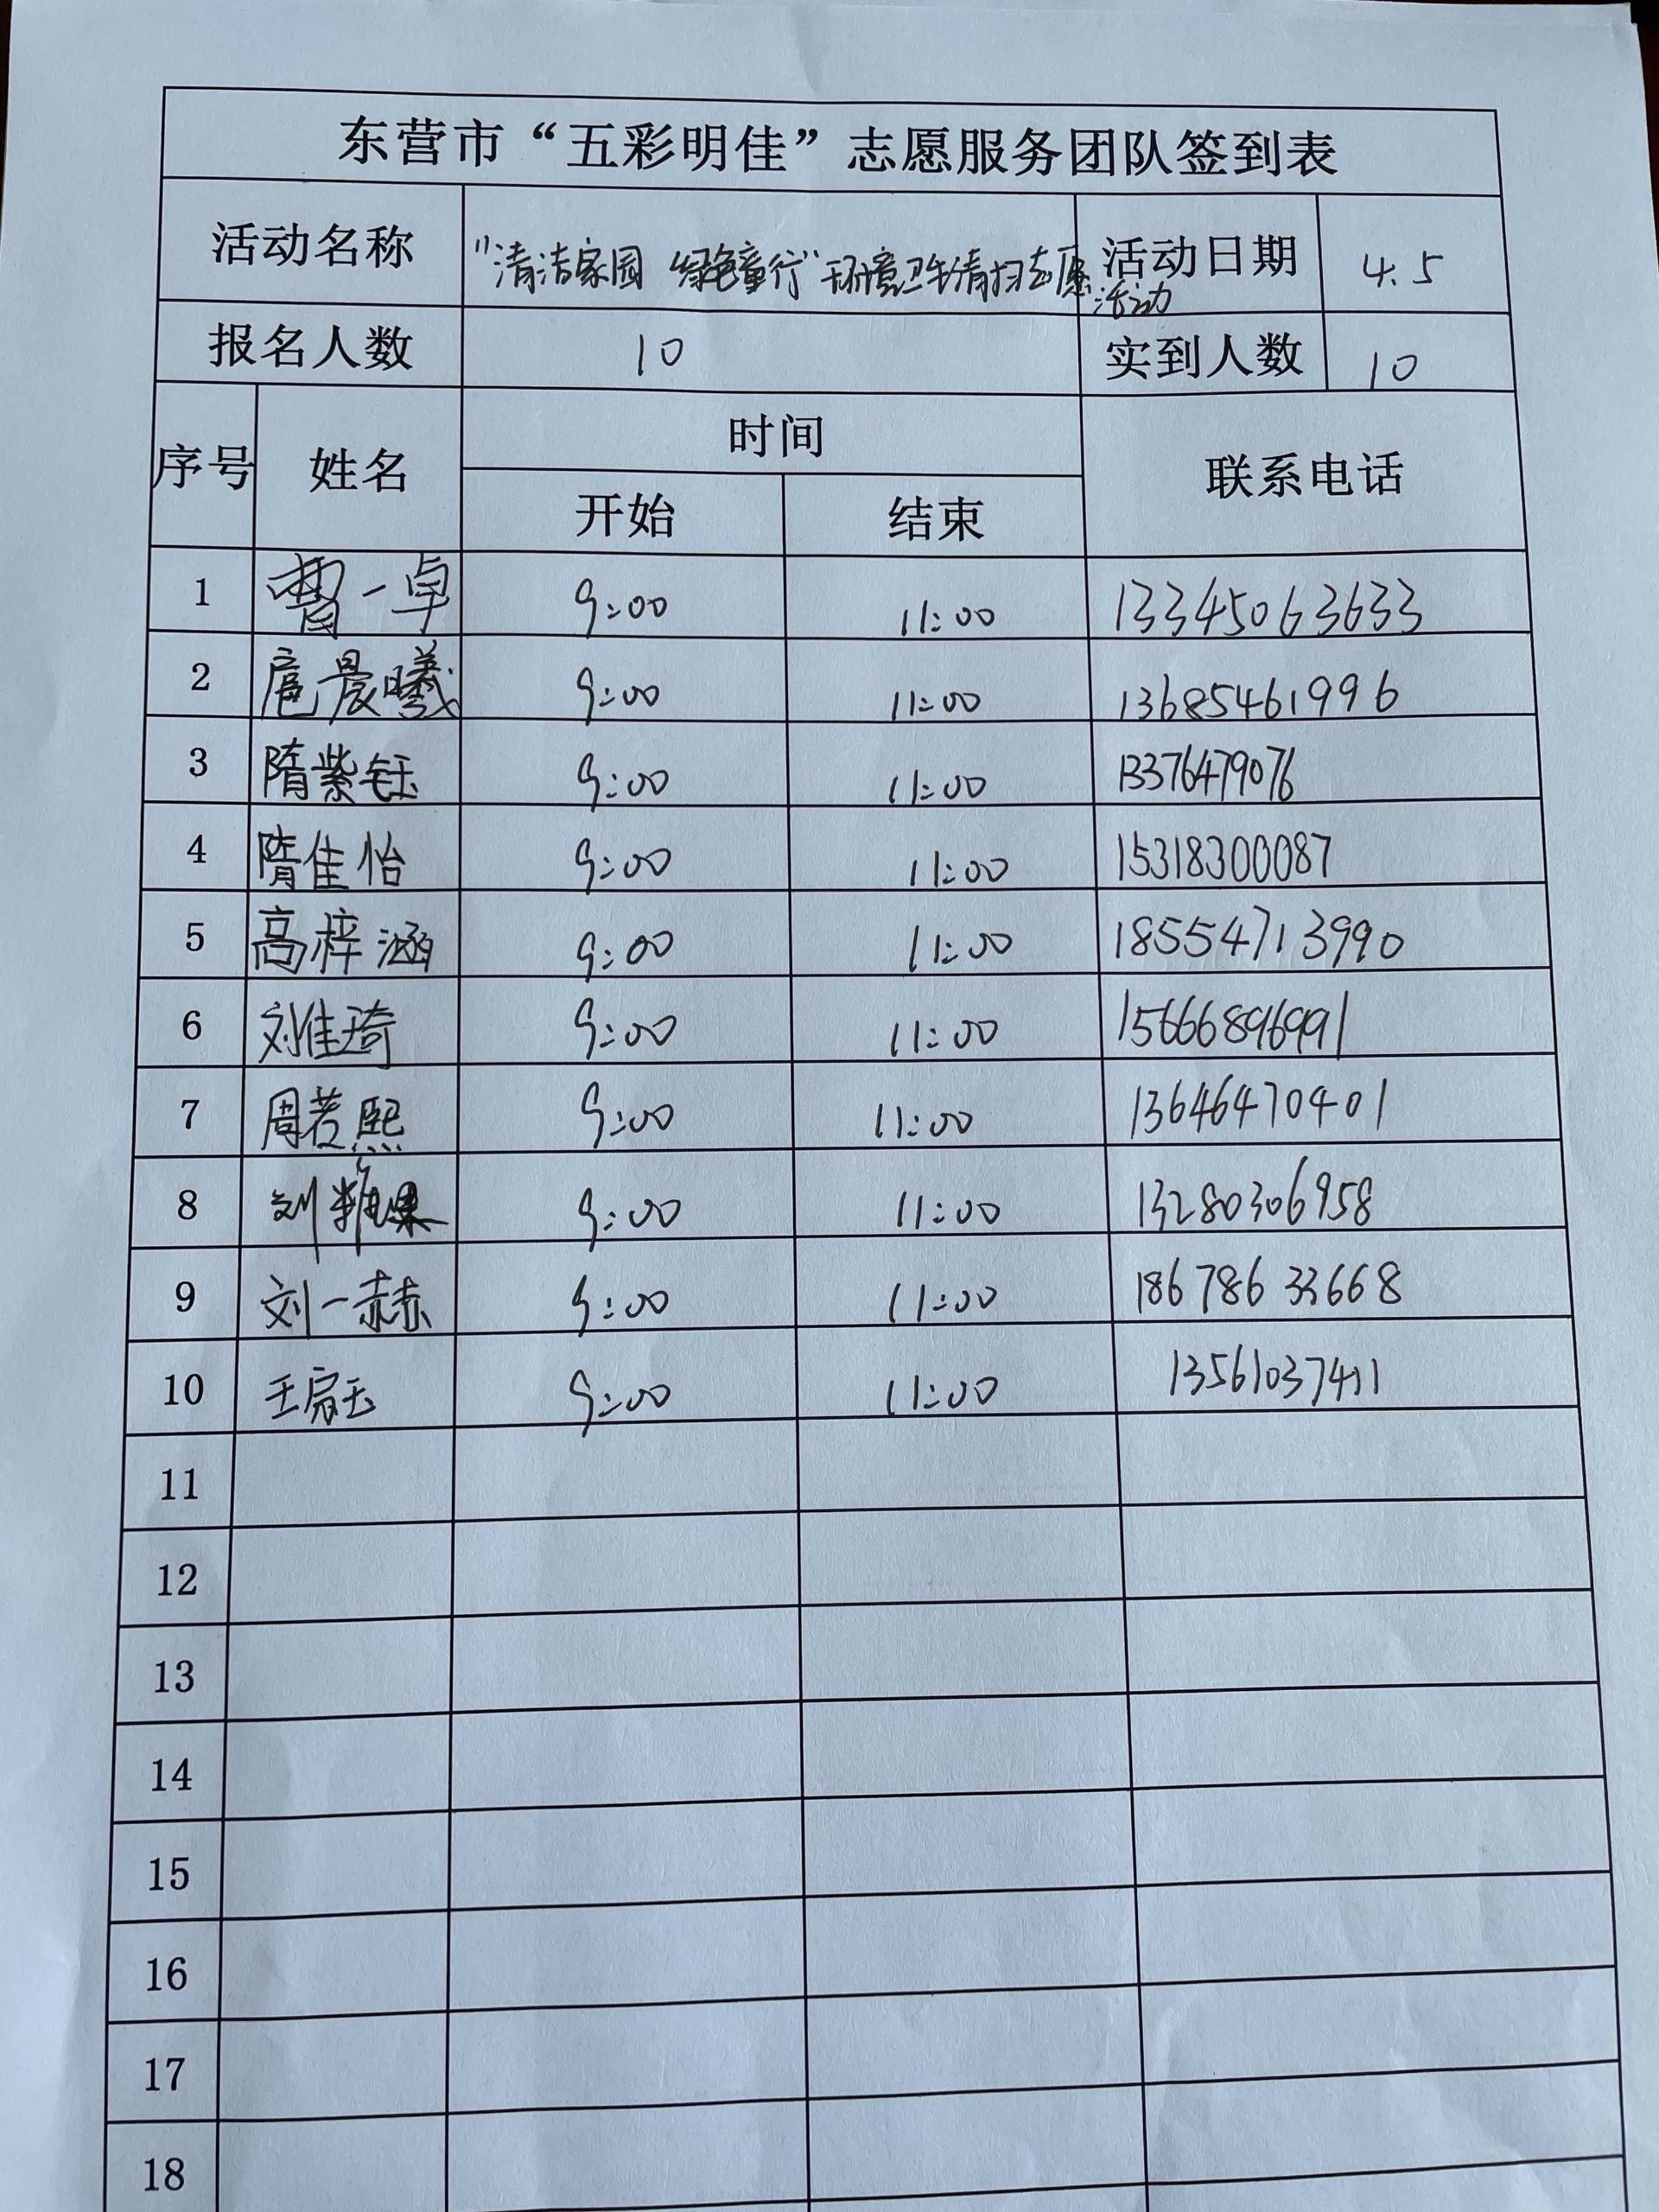 东营市“五彩明佳”志愿服务团队签到表
活动名称 “清洁家园 绿色童行”环境卫生清扫志愿活动 活动日期 4.5
报名人数 10 实到人数 10
序号 姓名 时间 联系电话
开始 结束
1 曹一卓 9:00 11:00 13345063633
2 扈晨曦 9:00 11:00 13685461996
3 隋紫钰 9:00 11:00 13376479076
4 隋佳怡 9:00 11:00 15318300087
5 高梓涵 9:00 11:00 18554713990
6 刘佳琦 9:00 11:00 15666896991
7 周若熙 9:00 11:00 13646470401
8 刘 9:00 11:00 13280306958
9 刘一赫 9:00 11:00 18678633668
10 王 9:00 11:00 13561037411
11
12
13
14
15
16
17
18